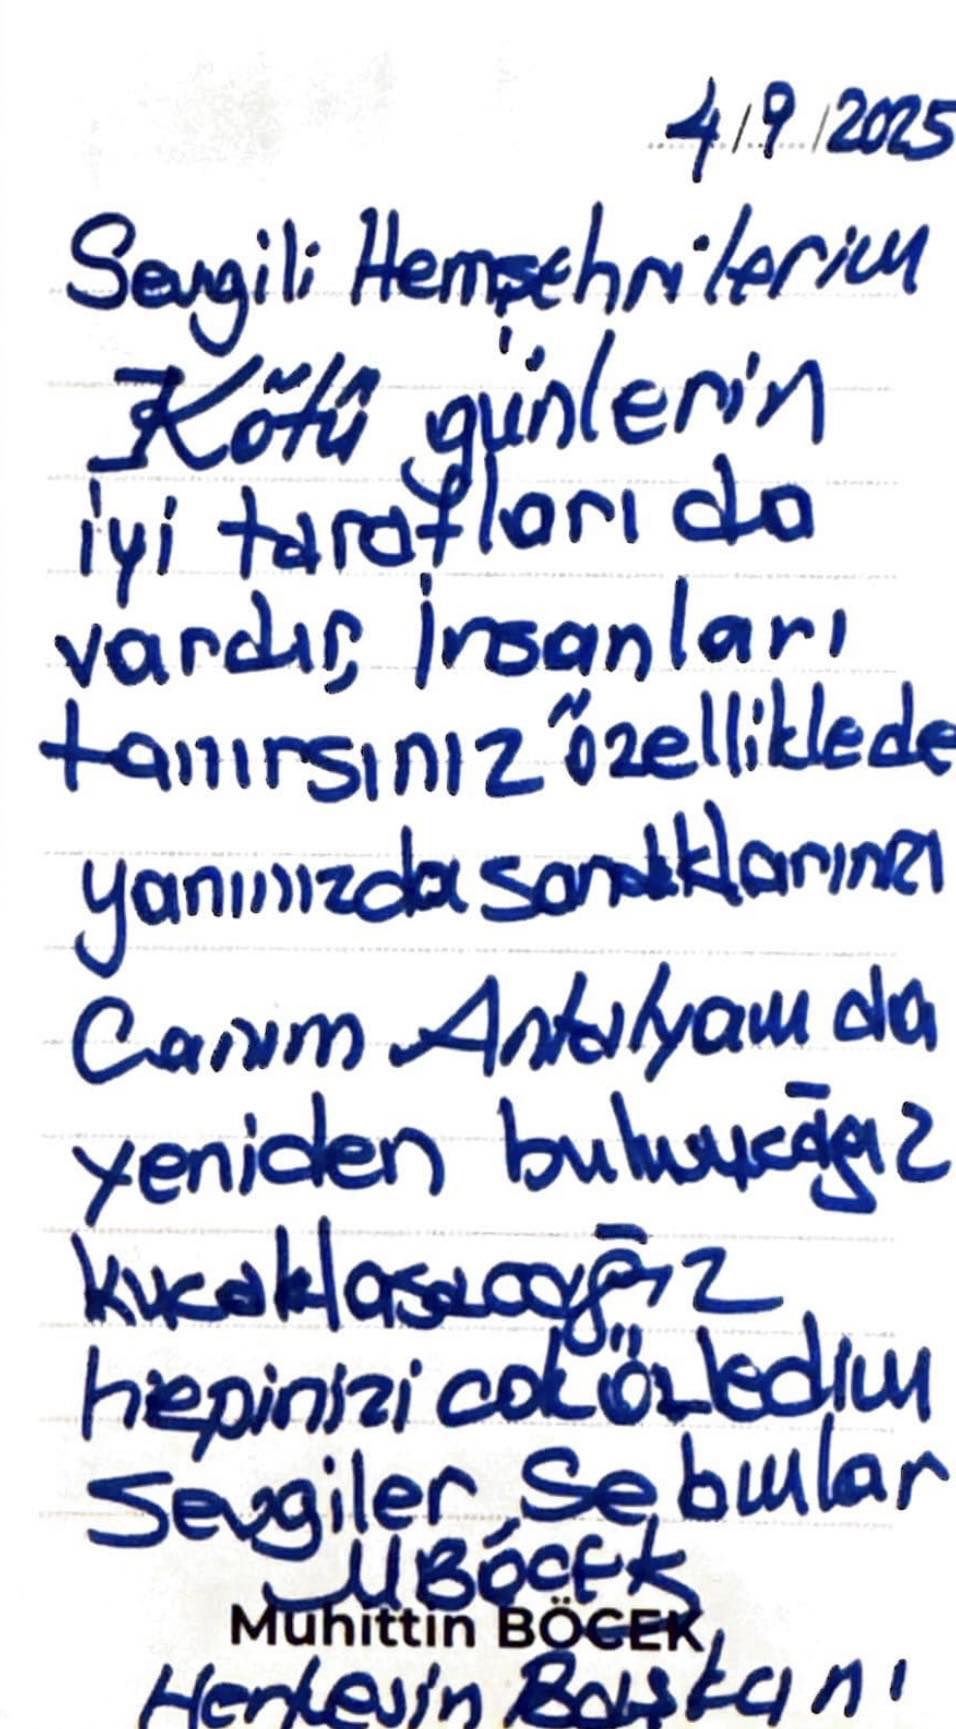 4/9/2025
Sevgili Hemşehrilerim
Kötü günlerin
iyi tarafları da
vardır, İnsanları
tanırsınız özelliklede
yanınızda sandıklarınızı
Canım Antalyam da
yeniden buluşucağız
kucaklaşacağız
hepinizi çok özledim
Sevgiler
MBÖCEK
Muhittin BÖCEK
Herkesin Başkanı